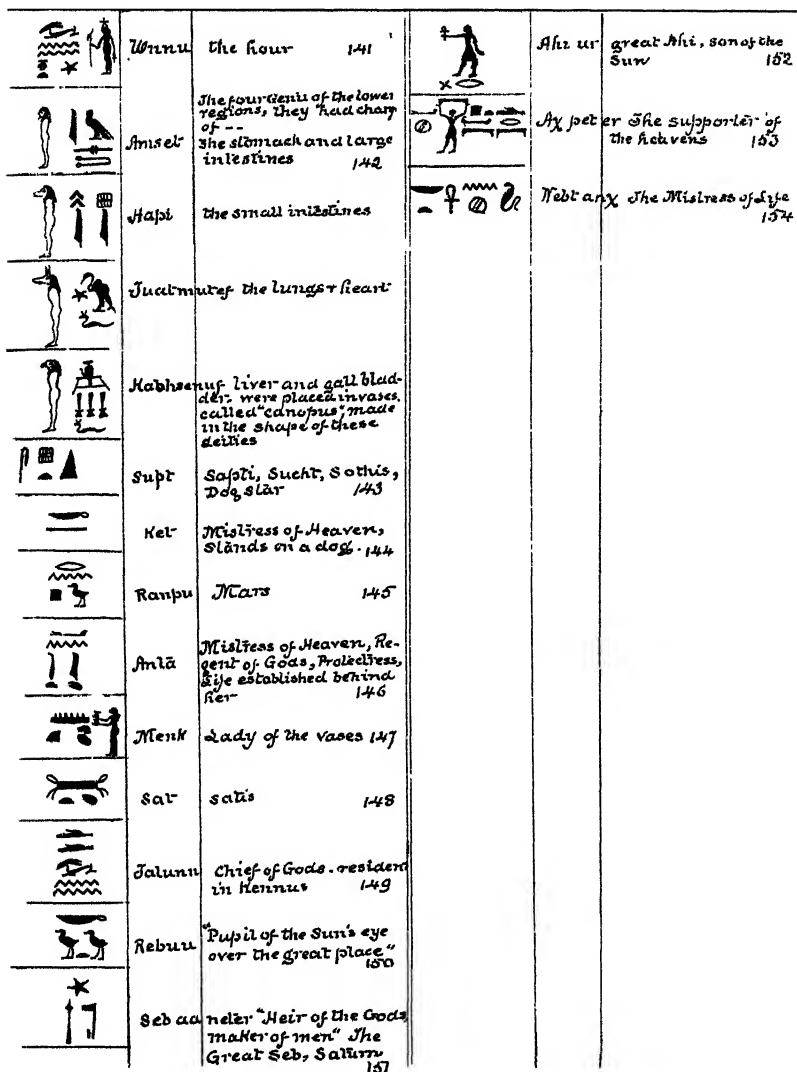 Unnu the hour 141
The four Genii of the lower
regions, they had charg
of --
Amset the stomach and large
intestines 142
Hapi the small intestines
Tuatmutef the lungs & heart
Kabhsenuf liver and gall blad-
der. were placed in vases,
called "canopus", made
in the shape of these
deities
Supt Sapti, Sucht, Sothis,
Dog star 143
Ket Mistress of Heaven,
Stands on a dog. 144
Ranpu Mars 145
Anta Mistress of Heaven, Re-
gent of Gods, Protectress,
Life established behind
her 146
Menk Lady of the vases 147
Sat satis 148
Tatunu Chief of Gods. resident
in Hennus 149
Rebuu "Pupil of the Sun's eye
over the great place"
150
Seb aa neter "Heir of the Gods,
maker of men" The
Great Seb, Saturn
151
Ahi ur great Ahi, son of the
Sun 152
Aχ pet er The supporter of
the heavens 153
Nebt anχ The Mistress of Life
154